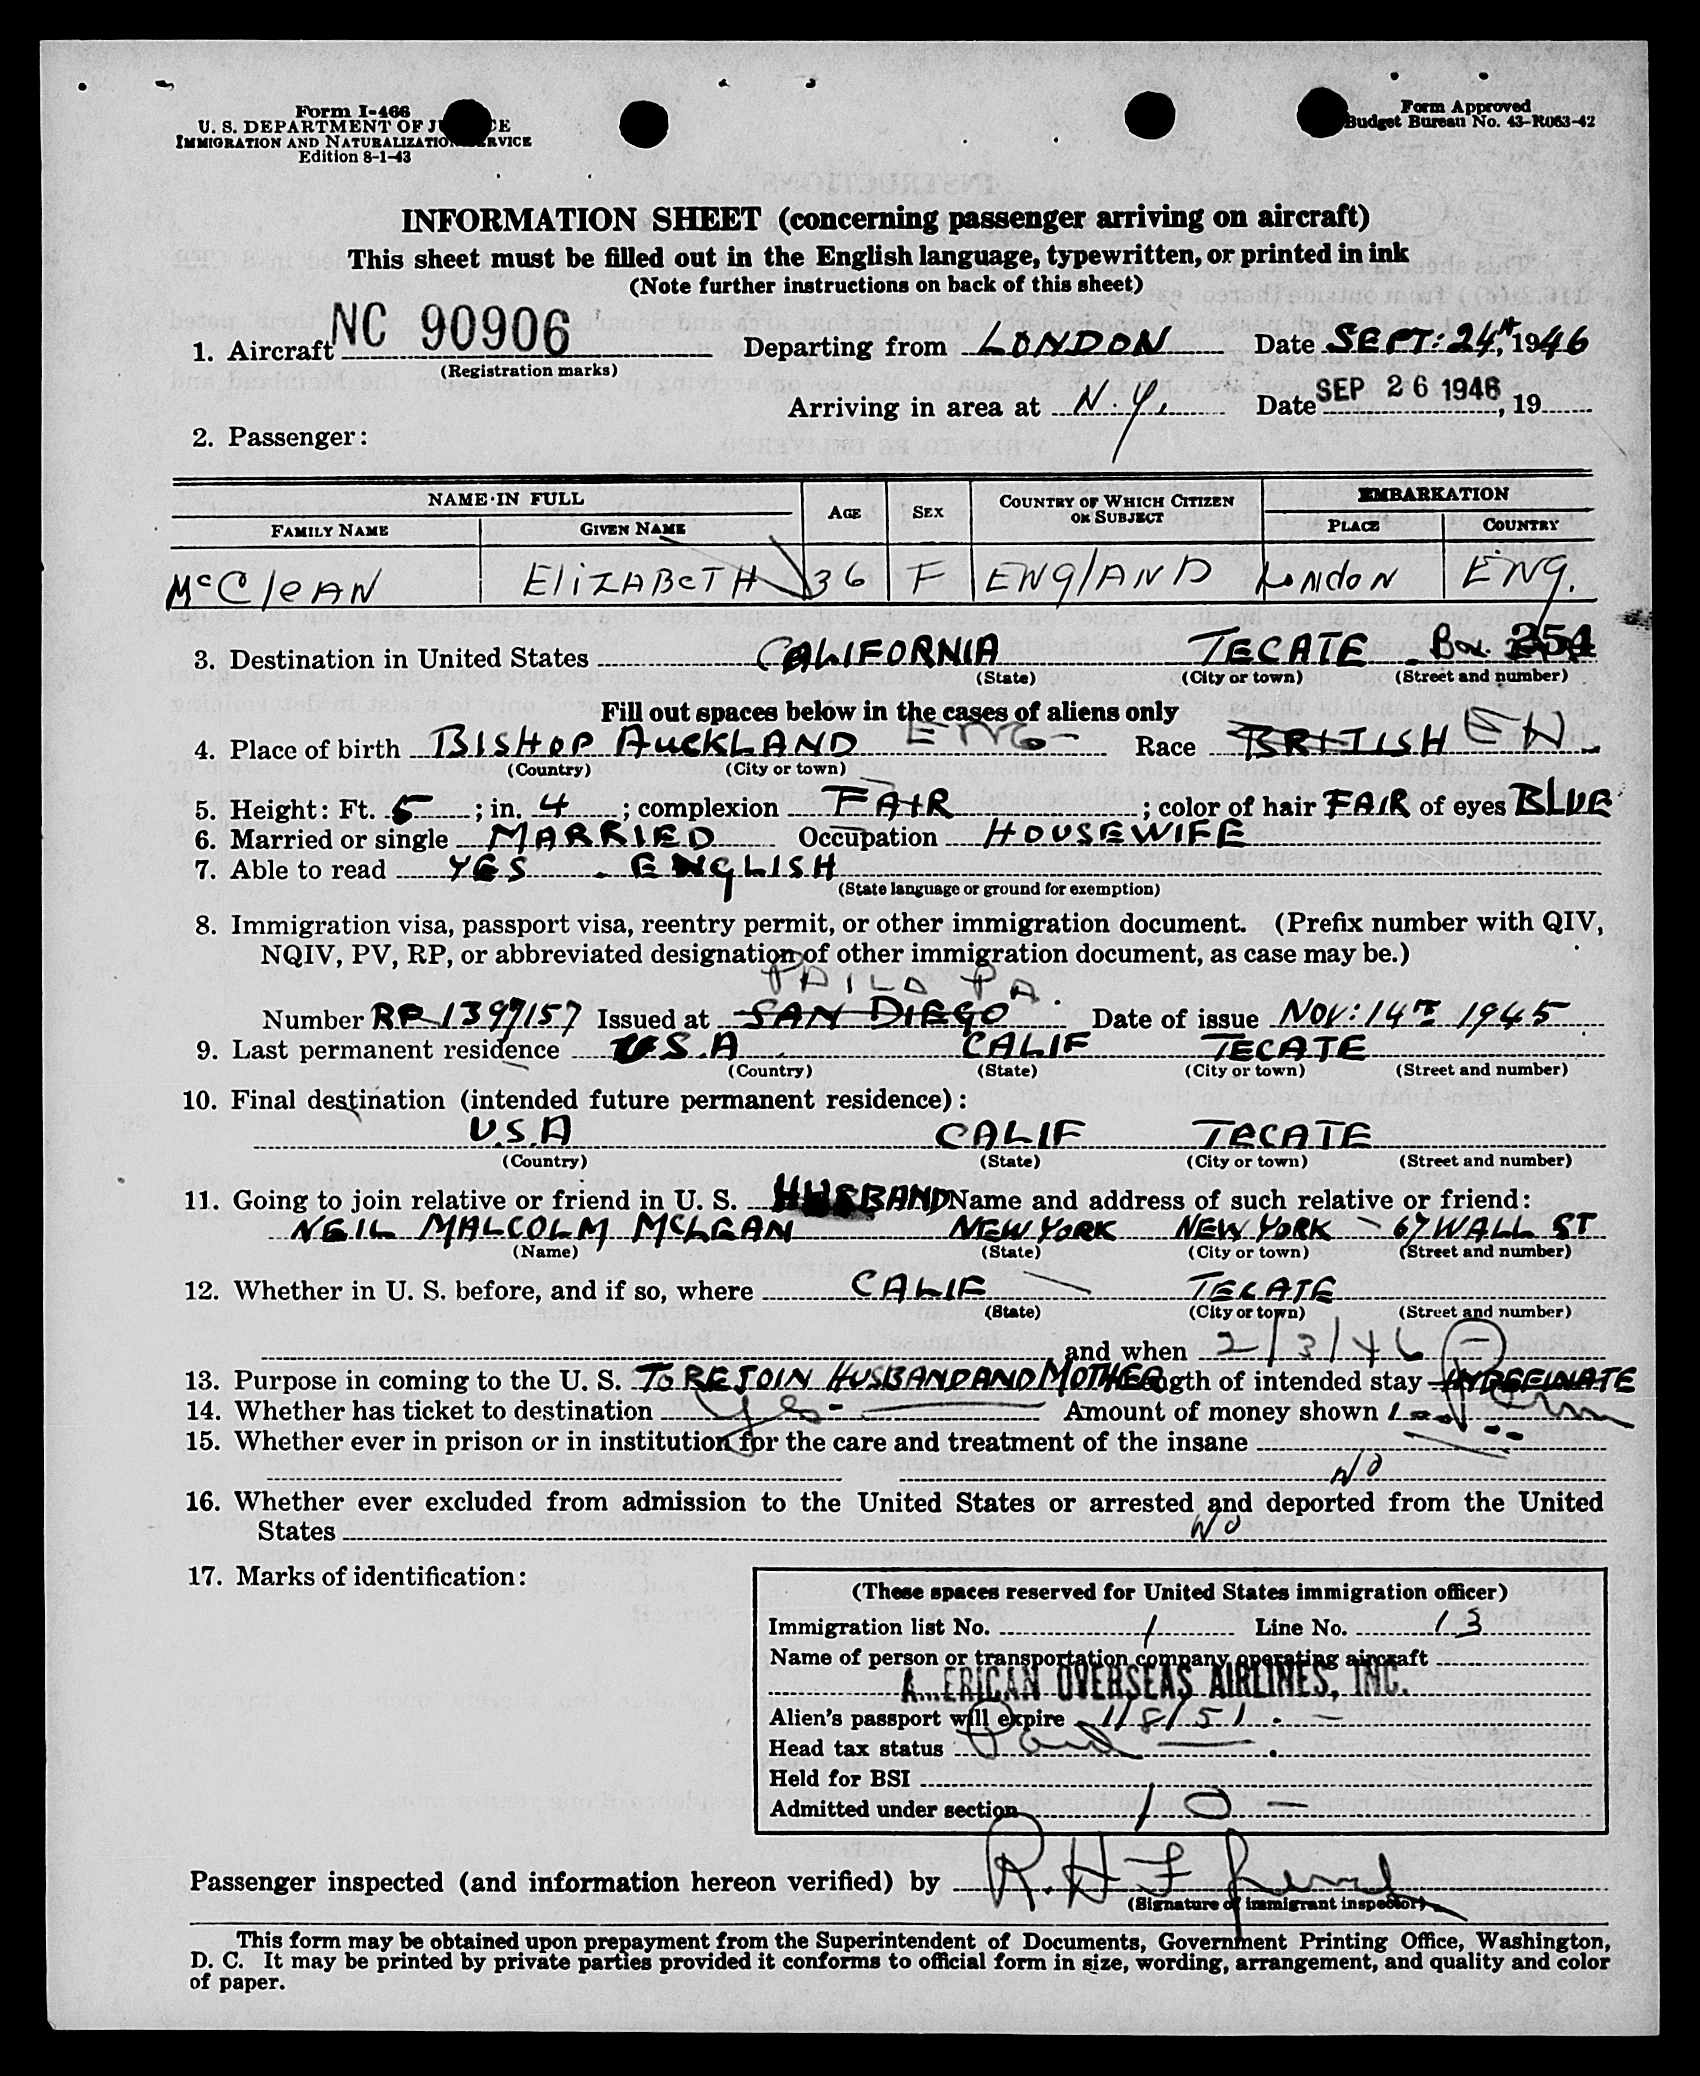 Form I-466
U. S. DEPARTMENT OF J CE
IMMIGRATION AND NATURALIZATION RVICE
Edition 8-1-43
Form Approved
Budget Bureau No. 43-R063-42
INFORMATION SHEET (concerning passenger arriving on aircraft)
This sheet must be filled out in the English language, typewritten, or printed in ink
(Note further instructions on back of this sheet)
1. Aircraft NC 90906 Departing from LONDON Date SEPT: 24th, 1946
(Registration marks)
Arriving in area at N.Y. Date SEP 26 1946, 19
2. Passenger:
NAME IN FULL AGE SEX COUNTRY OF WHICH CITIZEN OR SUBJECT EMBARKATION
FAMILY NAME GIVEN NAME PLACE COUNTRY
McClEAN EliZABETH 36 F ENglAND LoNdoN ENg.
3. Destination in United States CALIFORNIA TECATE Box 254
(State) (City or town) (Street and number)
Fill out spaces below in the cases of aliens only
4. Place of birth BISHOP AUCKLAND ENG- Race BRITISH EN
(Country) (City or town)
5. Height: Ft. 5; in. 4; complexion FAIR; color of hair FAIR of eyes BLUE
6. Married or single MARRIED Occupation HOUSEWIFE
7. Able to read YES. ENGLISH
(State language or ground for exemption)
8. Immigration visa, passport visa, reentry permit, or other immigration document. (Prefix number with QIV,
NQIV, PV, RP, or abbreviated designation of other immigration document, as case may be.)
PHILA PA
Number RP 1397157 Issued at SAN DIEGO Date of issue NOV: 14TH 1945
9. Last permanent residence U.S.A CALIF TECATE
(Country) (State) (City or town) (Street and number)
10. Final destination (intended future permanent residence):
U.S.A CALIF TECATE
(Country) (State) (City or town) (Street and number)
11. Going to join relative or friend in U. S. HUSBAND Name and address of such relative or friend:
NEIL MALCOLM MCLEAN NEW YORK NEW YORK - 67 WALL ST
(Name) (State) (City or town) (Street and number)
12. Whether in U. S. before, and if so, where CALIF TECATE
(State) (City or town) (Street and number)
and when 2/3/46
13. Purpose in coming to the U. S. TO REJOIN HUSBAND AND MOTHER ngth of intended stay INDEFINATE Perm
14. Whether has ticket to destination Yes- Amount of money shown
15. Whether ever in prison or in institution for the care and treatment of the insane
NO
16. Whether ever excluded from admission to the United States or arrested and deported from the United
States NO
17. Marks of identification:
(These spaces reserved for United States immigration officer)
Immigration list No. 1 Line No. 13
Name of person or transportation company operating aircraft
A ERICAN OVERSEAS AIRLINES, INC.
Alien's passport will expire 1/8/51.-
Head tax status Paid
Held for BSI
Admitted under section 10-
Passenger inspected (and information hereon verified) by R. H. F.
(Signature of immigrant inspector)
This form may be obtained upon prepayment from the Superintendent of Documents, Government Printing Office, Washington,
D. C. It may be printed by private parties provided it conforms to official form in size, wording, arrangement, and quality and color
of paper.